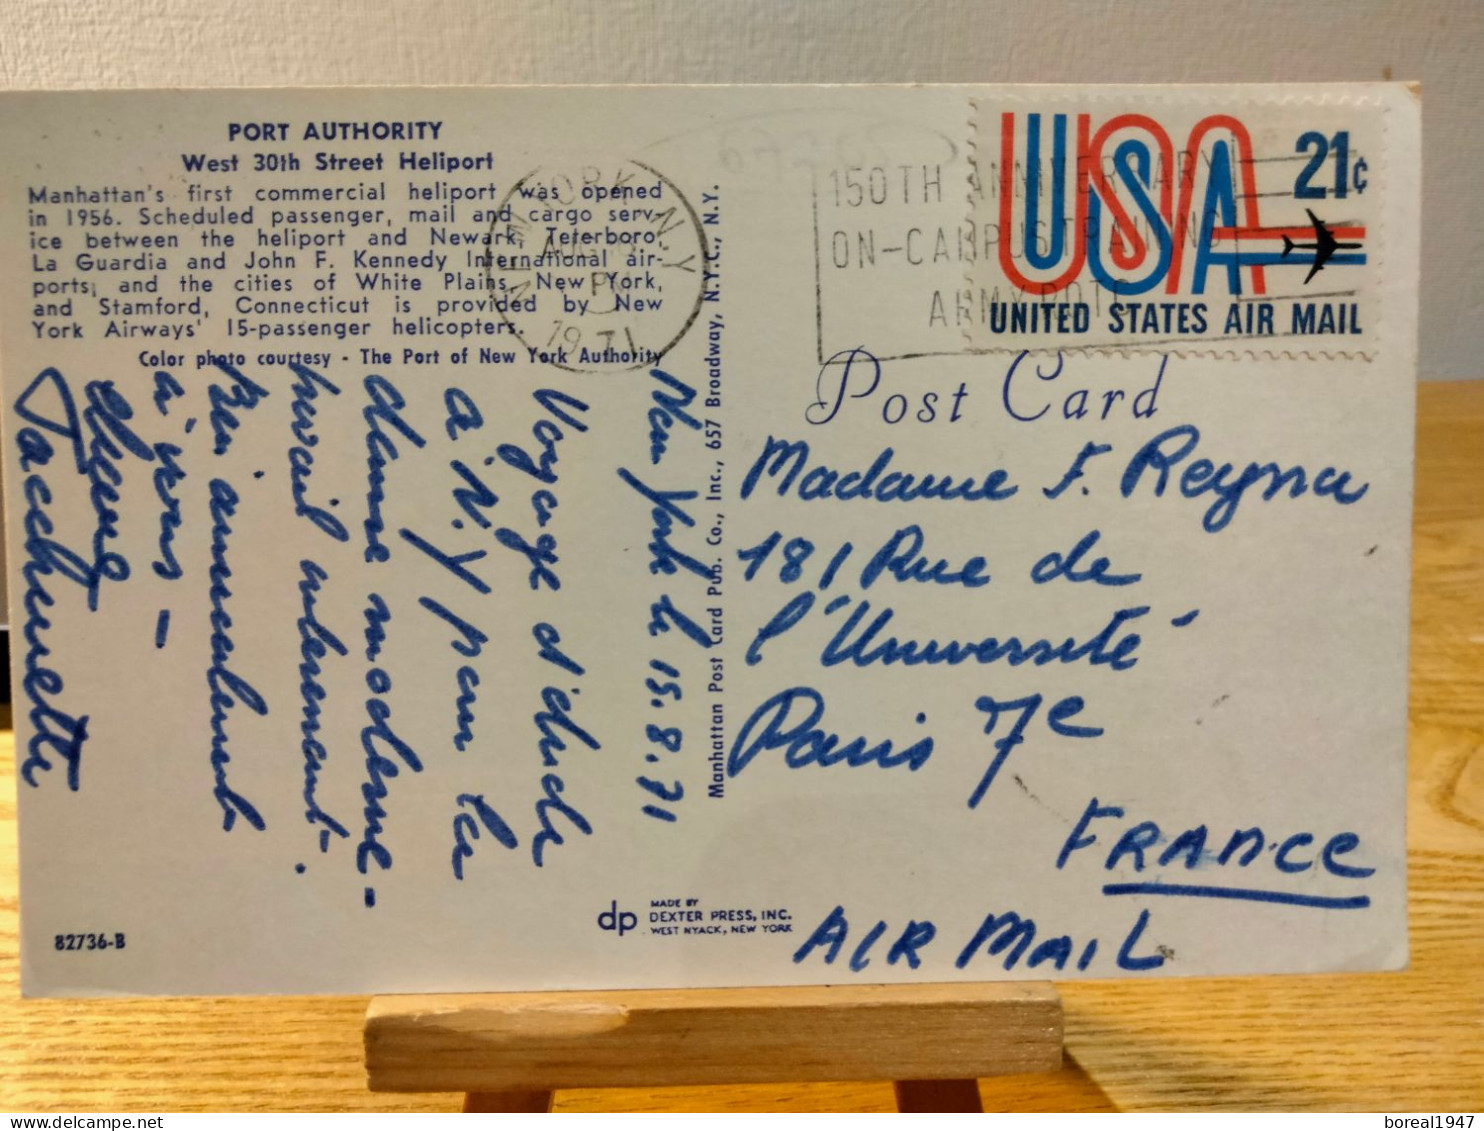 PORT AUTHORITY
West 30th Street Heliport
Manhattan's first commercial heliport was opened
in 1956. Scheduled passenger, mail and cargo serv-
ice between the heliport and Newark, Teterboro,
La Guardia and John F. Kennedy International air-
ports, and the cities of White Plains, New York,
and Stamford, Connecticut is provided by New
York Airways' 15-passenger helicopters.
Color photo courtesy - The Port of New York Authority
NEW YORK N.Y
PM
1971
150TH ANNIVERSARY
ON-CAMPUS TRAINING
ARMY ROTC
USA
21c
UNITED STATES AIR MAIL
Post Card
New York le 15.8.71
Voyage d'étude
à N.Y pour la
danse moderne -
travail intéressant.
Bien amicalement
à vous -
Jacchinetti
Manhattan Post Card Pub. Co., Inc., 657 Broadway, N.Y.C., N.Y.
Madame F. Reyna
181 Rue de
l'Université
Paris 7e
FRANCE
AIR MAIL
82736-B
dp
MADE BY
DEXTER PRESS, INC.
WEST NYACK, NEW YORK
boreal1947